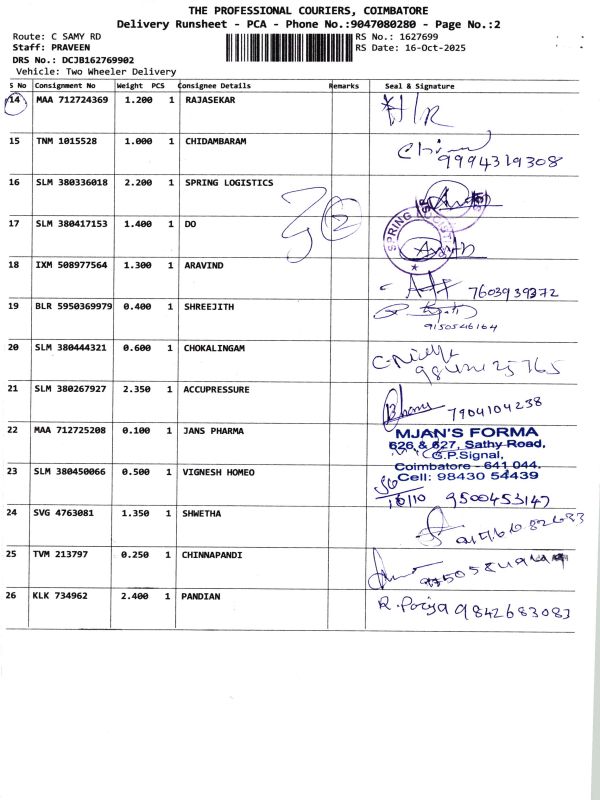 THE PROFESSIONAL COURIERS, COIMBATORE
Delivery Runsheet - PCA - Phone No.:9047080280 - Page No.:2
Route: C SAMY RD
Staff: PRAVEEN
DRS No.: DCJB162769902
Vehicle: Two Wheeler Delivery
RS No.: 1627699
RS Date: 16-Oct-2025
S No Consignment No Weight PCS Consignee Details Remarks Seal & Signature
14 MAA 712724369 1.200 1 RAJASEKAR
15 TNM 1015528 1.000 1 CHIDAMBARAM 9994319308
16 SLM 380336018 2.200 1 SPRING LOGISTICS
2
17 SLM 380417153 1.400 1 DO
SPRING
18 IXM 508977564 1.300 1 ARAVIND 7603939372
19 BLR 5950369979 0.400 1 SHREEJITH
9150546164
20 SLM 380444321 0.600 1 CHOKALINGAM
21 SLM 380267927 2.350 1 ACCUPRESSURE 7904104238
22 MAA 712725208 0.100 1 JANS PHARMA
MJAN'S FORMA
626 & 627, Sathy Road,
G.P.Signal,
Coimbatore - 641 044.
Cell: 98430 54439
23 SLM 380450066 0.500 1 VIGNESH HOMEO
16/10 9500453147
24 SVG 4763081 1.350 1 SHWETHA
25 TVM 213797 0.250 1 CHINNAPANDI
26 KLK 734962 2.400 1 PANDIAN R. Poriya 9842683083